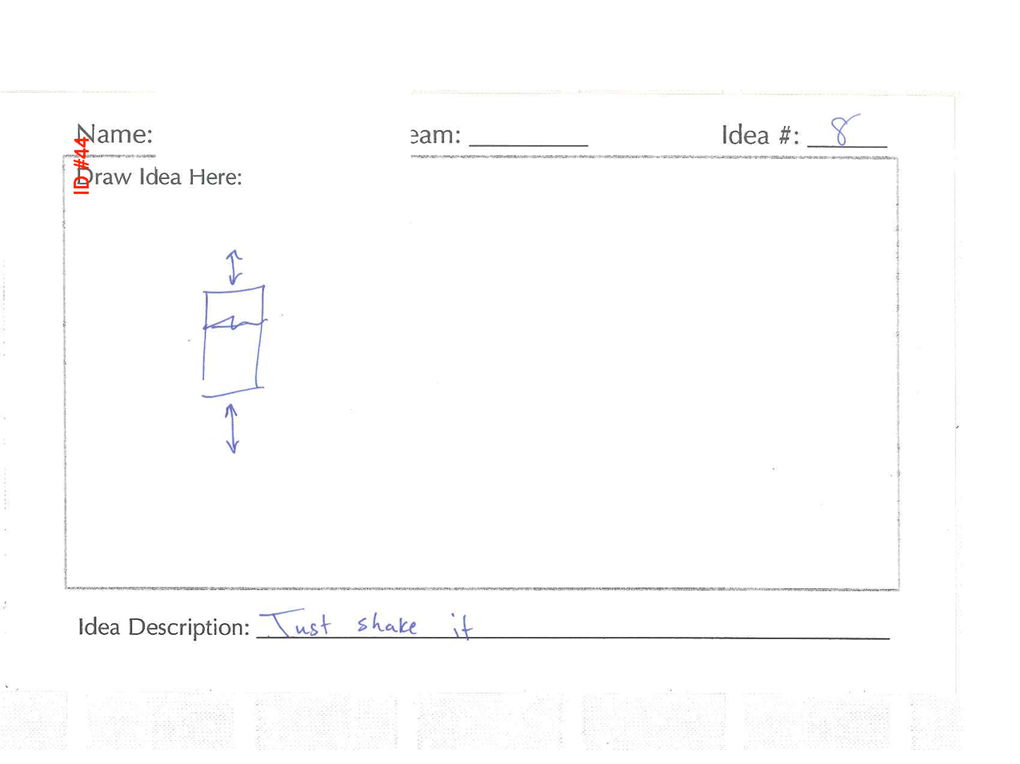 Name: eam: Idea #: 8
ID #44
Draw Idea Here:
Idea Description: Just shake it